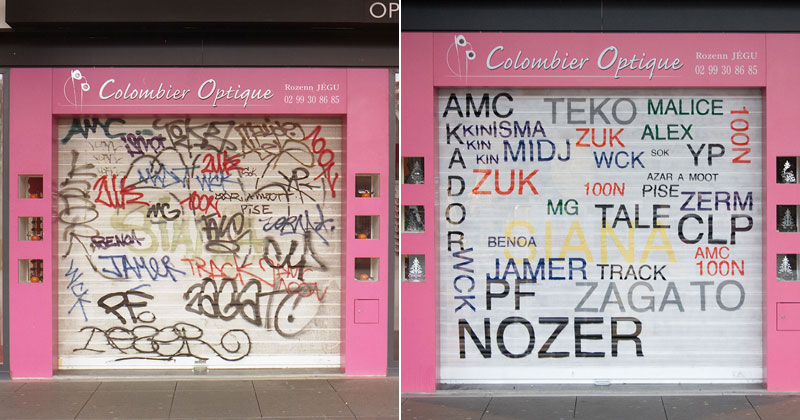 OP
Colombier Optique
Rozenn JÉGU
02 99 30 86 85
AMC
ZUK
WCK
YP
MG
100N
PISE
BENOA
SIANA
JAMER
TRACK
AMC
100N
PF
ZAGATO
Colombier Optique
Rozenn JÉGU
02 99 30 86 85
AMC TEKO MALICE 100N
KADOR
KINISMA ZUK ALEX
KIN
KIN MIDJ WCK SOK YP
ZUK 100N AZAR A MOOT
PISE
MG TALE ZERM
CLP
BENOA SIANA
WCK JAMER TRACK AMC
100N
PF ZAGATO
NOZER